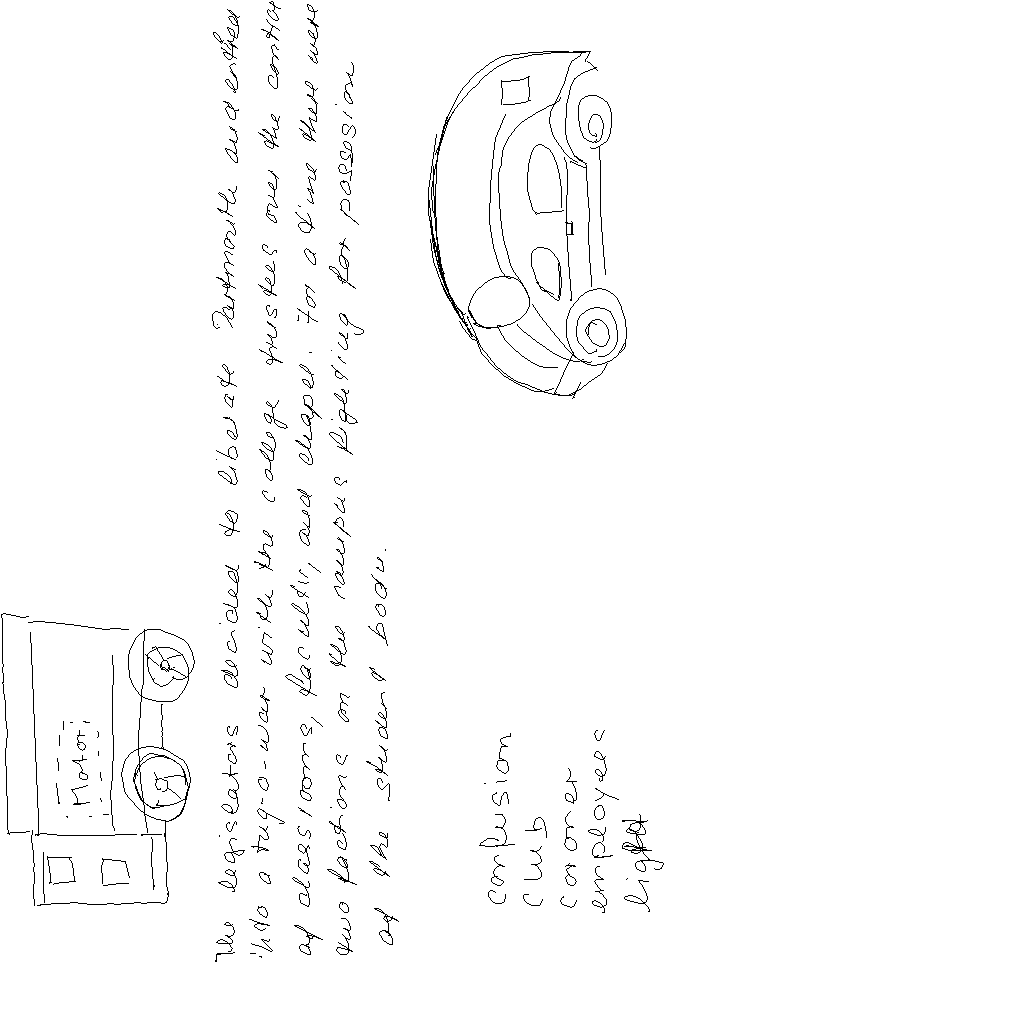 Motor
The legislators decided to liberate Dartmouth and entred
into a tug-o-war with the college trustees over the control
of classrooms, faculty, and chapel. For a time there were
two factions on the campus fighting for possesion
of the student body.
confusion
club
coroner
employees